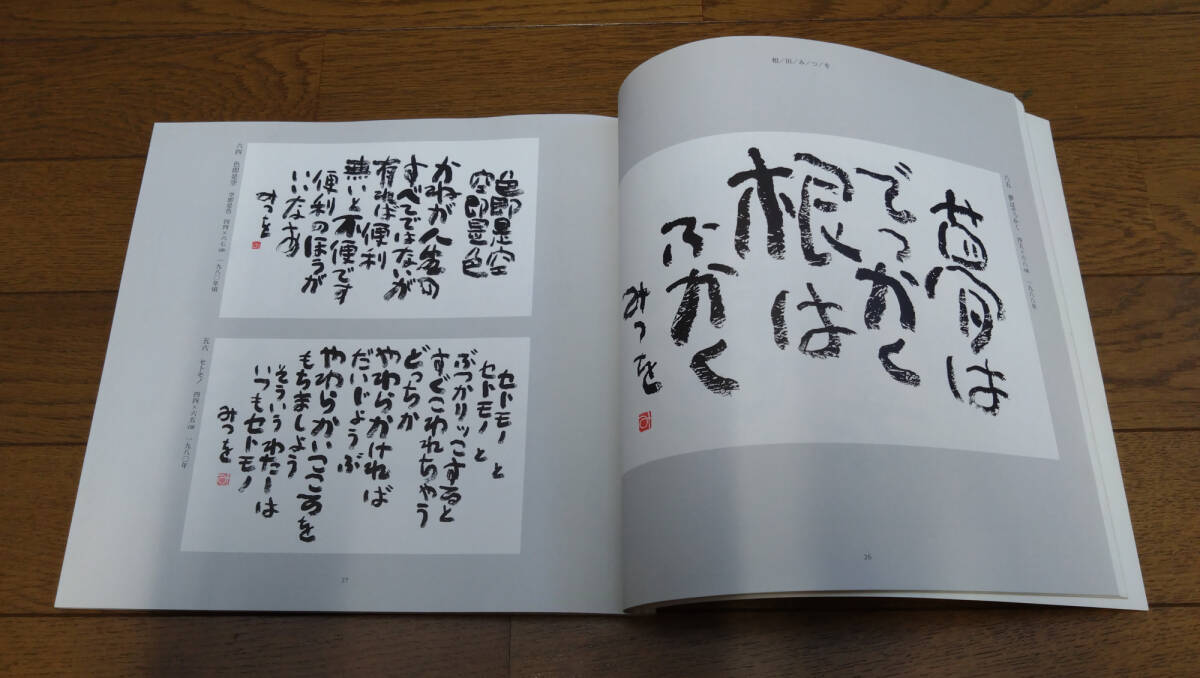 相/田/み/つ/を
夢はでっかく
夢は
でっかく
根は
ふかく
みつを
26
色即是空
空即是色
かねが人生の
すべてではないが
有れば便利
無いと不便です
便利のほうが
いいなあ
みつを
六四 色即是空 空即是色 四四×六七㎝ 一九八〇年頃
セトモノと
セトモノと
ぶつかりッこすると
すぐこわれちゃう
どっちか
やわらかければ
だいじょうぶ
やわらかいこころを
もちましょう
そういうわたしは
いつもセトモノ
みつを
五六 セトモノ 四四×六五㎝ 一九八〇年
27